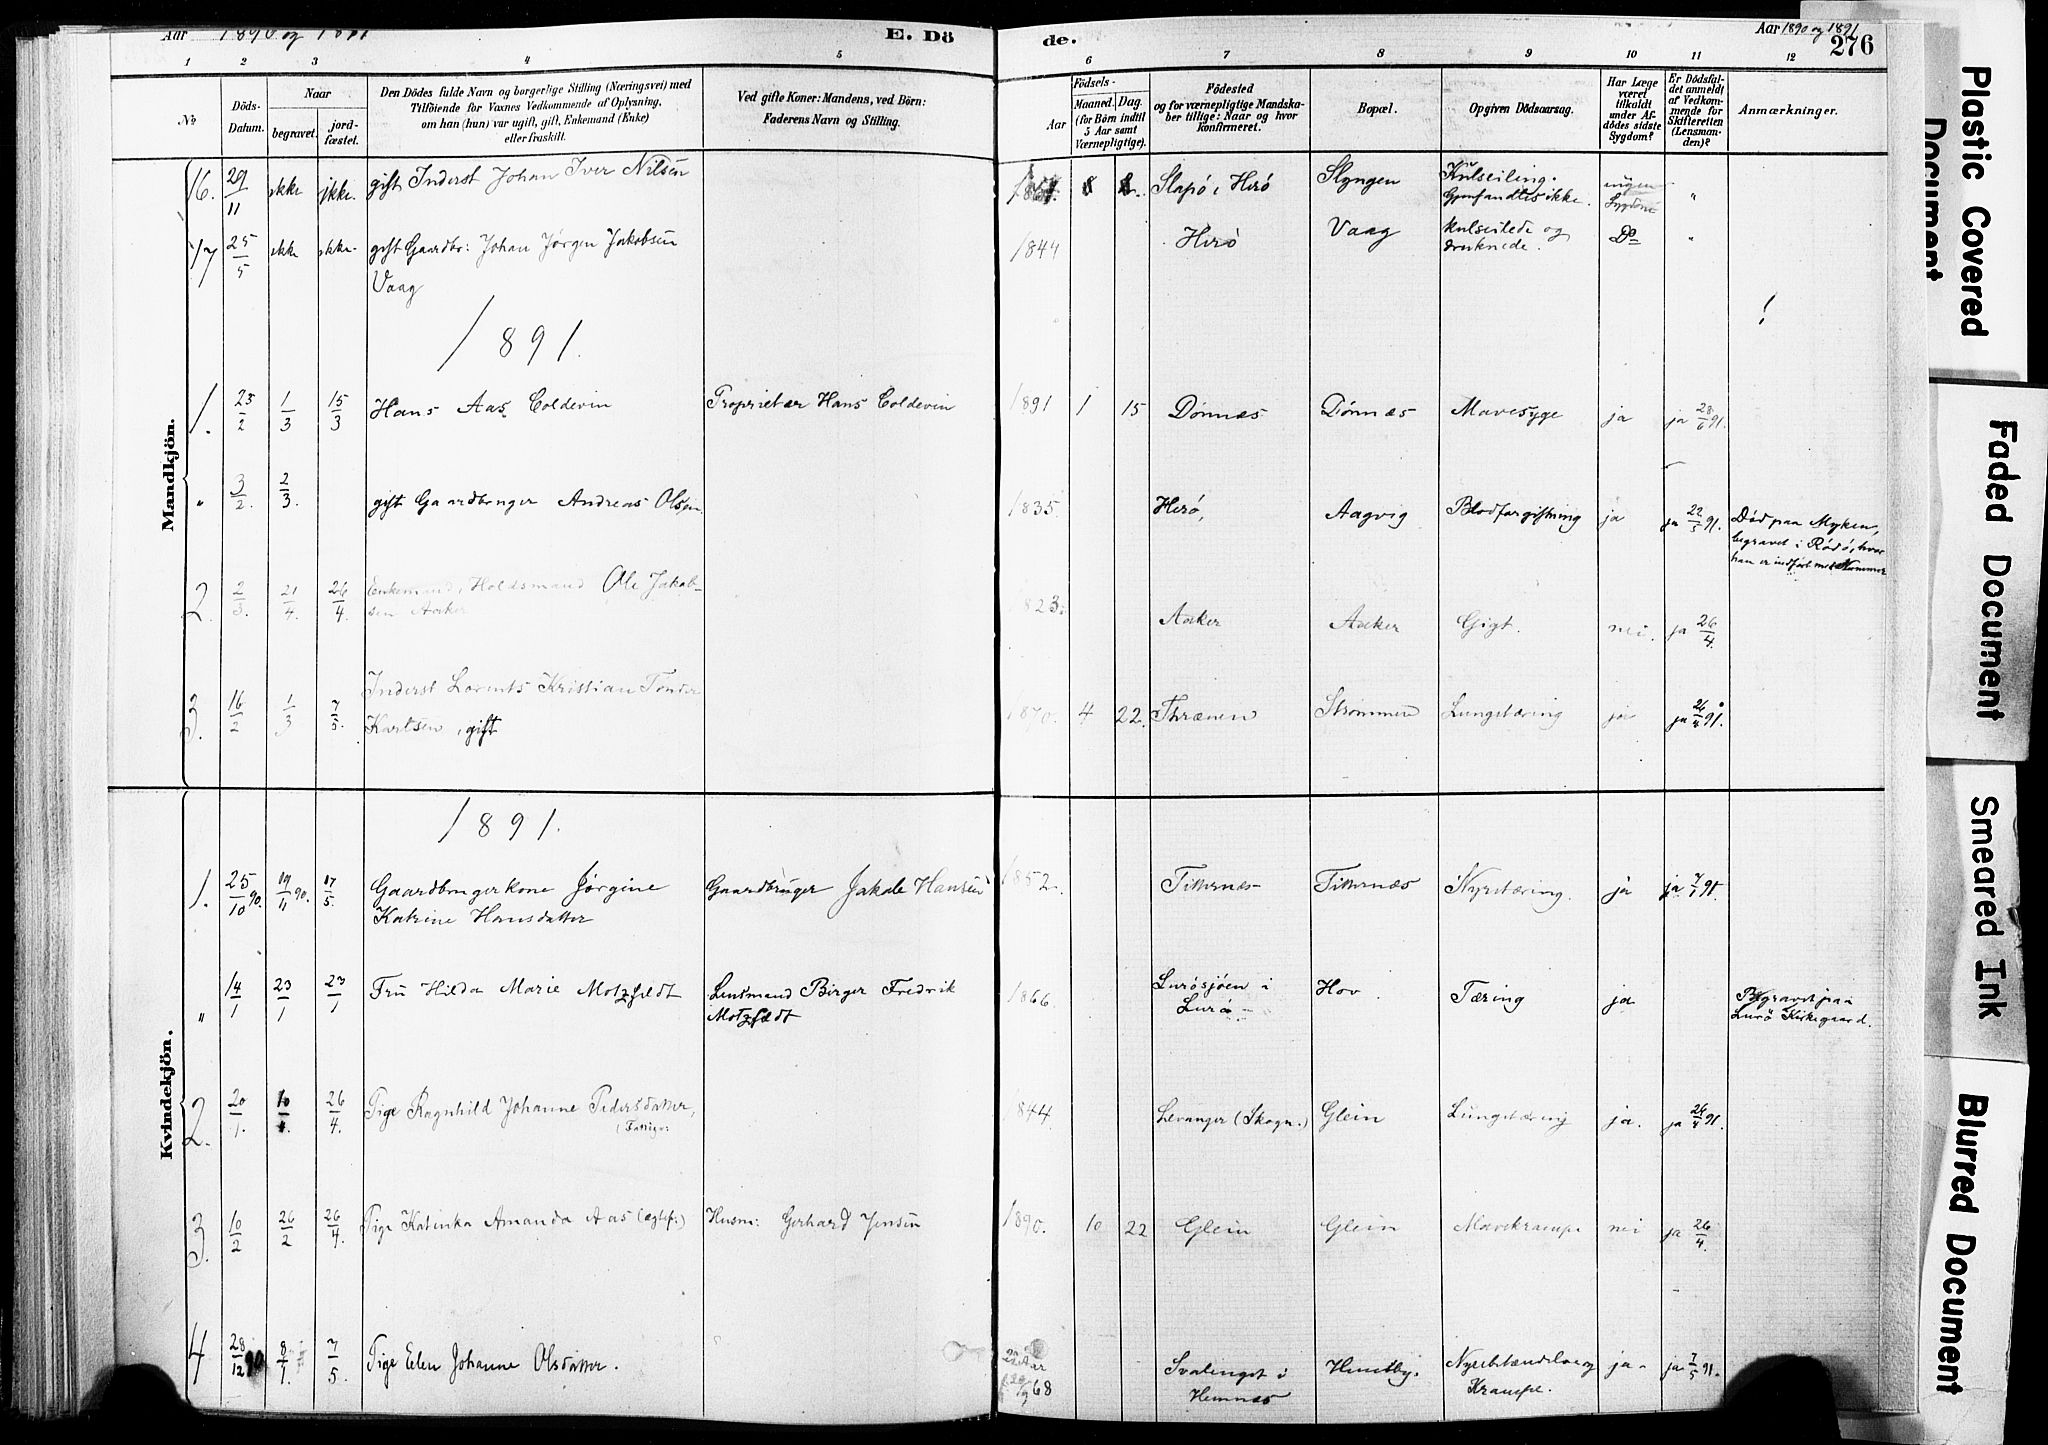 Aar 1890 og 1891
E. Dö
de.
Aar 1890 og 1891
276
1 2 3 4 5 6 7 8 9 10 11 12
No
Döds-
Datum.
Naar
begravet.
jord-
fæstet.
Den Dödes fulde Navn og borgerlige Stilling (Næringsvei) med
Tilföiende for Voxnes Vedkommende af Oplysning,
om han (hun) var ugift, gift, Enkemand (Enke)
eller fraskilt.
Ved gifte Koner: Mandens, ved Börn:
Faderens Navn og Stilling.
Aar
Födsels-
Maaned. Dag.
(for Börn indtil
5 Aar samt
Værnepligtige).
Födested
og for værnepligtige Mandska-
ber tillige: Naar og hvor
konfirmeret.
Bopæl.
Opgiven Dödsaarsag.
Har Læge
været
tilkaldt
under Af-
dödes sidste
Sygdom?
Er Dödsfal-
det anmeldt
af Vedkom-
mende for
Skifteretten
(Lensman-
den)?
Anmærkninger.
Mandkjön.
16. 29/11 ikke ikke. gift Inderst Johan Iver Nilsen Slapö i Herö Slyngen Kulseiling. ingen "
Gjenfandtes ikke. Sygdom
17 25/5 ikke ikke- gift Gaardbr: Johan Jörgen Jakobsen 1844 Herö Vaag kulseilede og Do "
Vaag druknede.
1891.
1. 23/2 1/3 15/3 Hans Aas Coldevin Proprietær Hans Coldevin 1891 1 15 Dönnæs Dönnæs Mavesyge ja ja 28/6 91.
" 3/2 2/3. gift Gaardbruger Andreas Olsen. 1835. Herö, Aagvig Blodforgiftning ja ja 22/5 91. Död paa Myken,
begravet i Rödö, hvor
han er indfört med Nummer
2. 2/3. 21/4. 26/4. Enkemand, Holdsmand Ole Jakob- 1823. Aaker Aaker Gigt. nei. ja 26/4.
sen Aaker
3. 16/2 1/3 7/5. Inderst Lorents Kristian Tonder 1870. 4 22. Thrænen Strömmen Lungetæring ja ja 26/4 91.
Karlsen, gift
Kvindekjön.
1891.
1. 25/10 90. 19/11 90. 17/5. Gaardbrugerkone Jörgine Gaardbruger Jakob Hansen 1852. Titternæs- Titternæs Nyretæring. ja ja 7/1 91.
Katrine Hansdatter
" 14/1 23/1 23/1 Fru Hilda Marie Motzfeldt Lensmand Birger Fredrik 1866 Lurösjöen i Hov. Tæring ja Begravet paa
Motzfeldt Lurö- Lurö Kirkegaard.
2. 20/1. 10/1. 26/4. Pige Ragnhild Johanne Pedersdatter, 1844. Levanger (Skogn.) Glein Lungetæring ja. ja 26/4 91.
(Fattigv:
3. 10/2 26/2 26/4 Pige Katinka Amanda Aas (ægtef:) Husm: Gerhard Jensen 1890. 10 22 Glein Glein Mavekrampe nei ja 26/4.
4 28/12 90 8/1. 7/5 Pige Elen Johanne Olsdatter. 68 Svalinget i Hæstby. Nyrebetændelse og ja- ja 7/5 91.
Hemnæs Krampe.
Plastic Covered
Document
Faded Document
Smeared Ink
Blurred Document